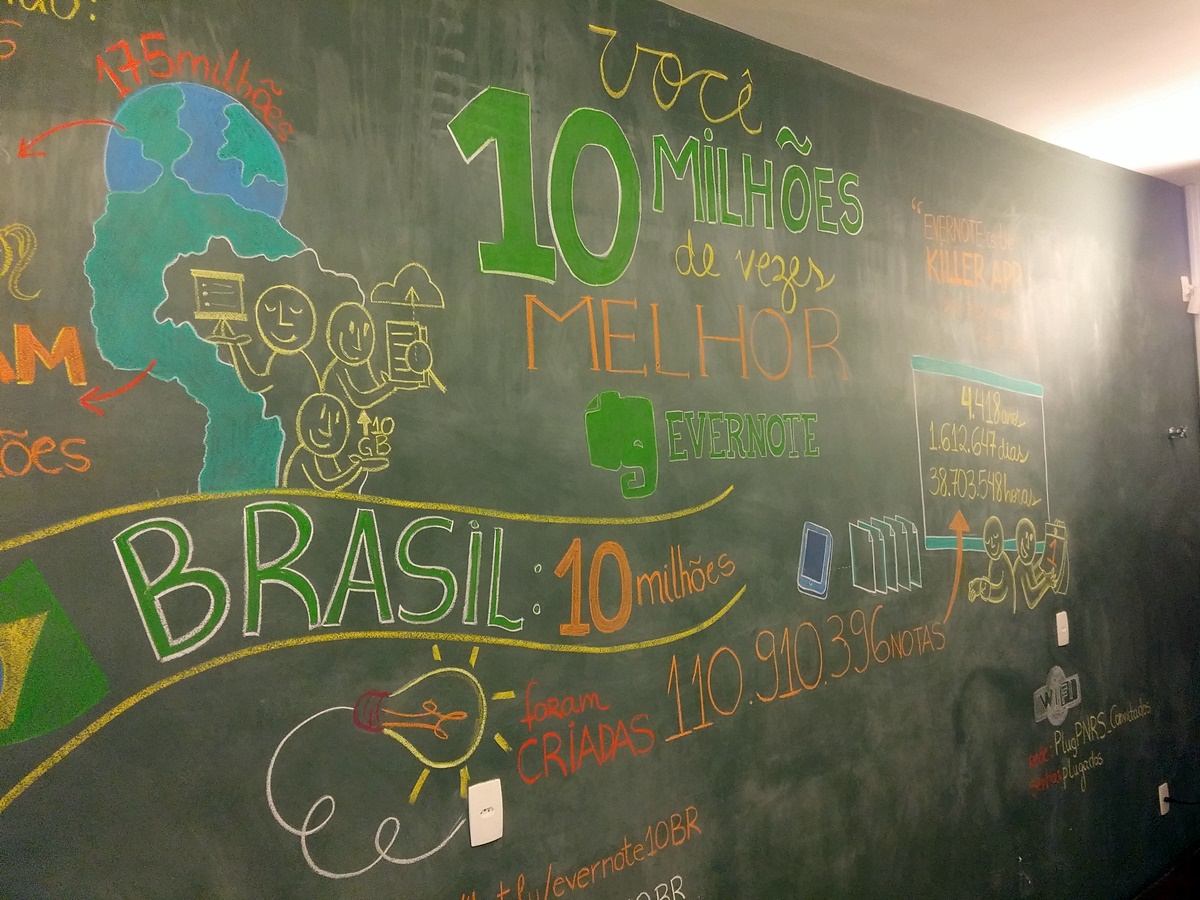 175 milhões
Você
10 MILHÕES
de vezes
MELHOR
EVERNOTE
"EVERNOTE is the
KILLER APP
AM
ões
10
GB
4.418 anos
1.612.647 dias
38.703.548 horas
BRASIL: 10 milhões
1
foram
CRIADAS 110.910.396 NOTAS
WIFI
rede: PlugPNRS_Convidados
senha: plugados
bit.ly/evernote10BR
0BR